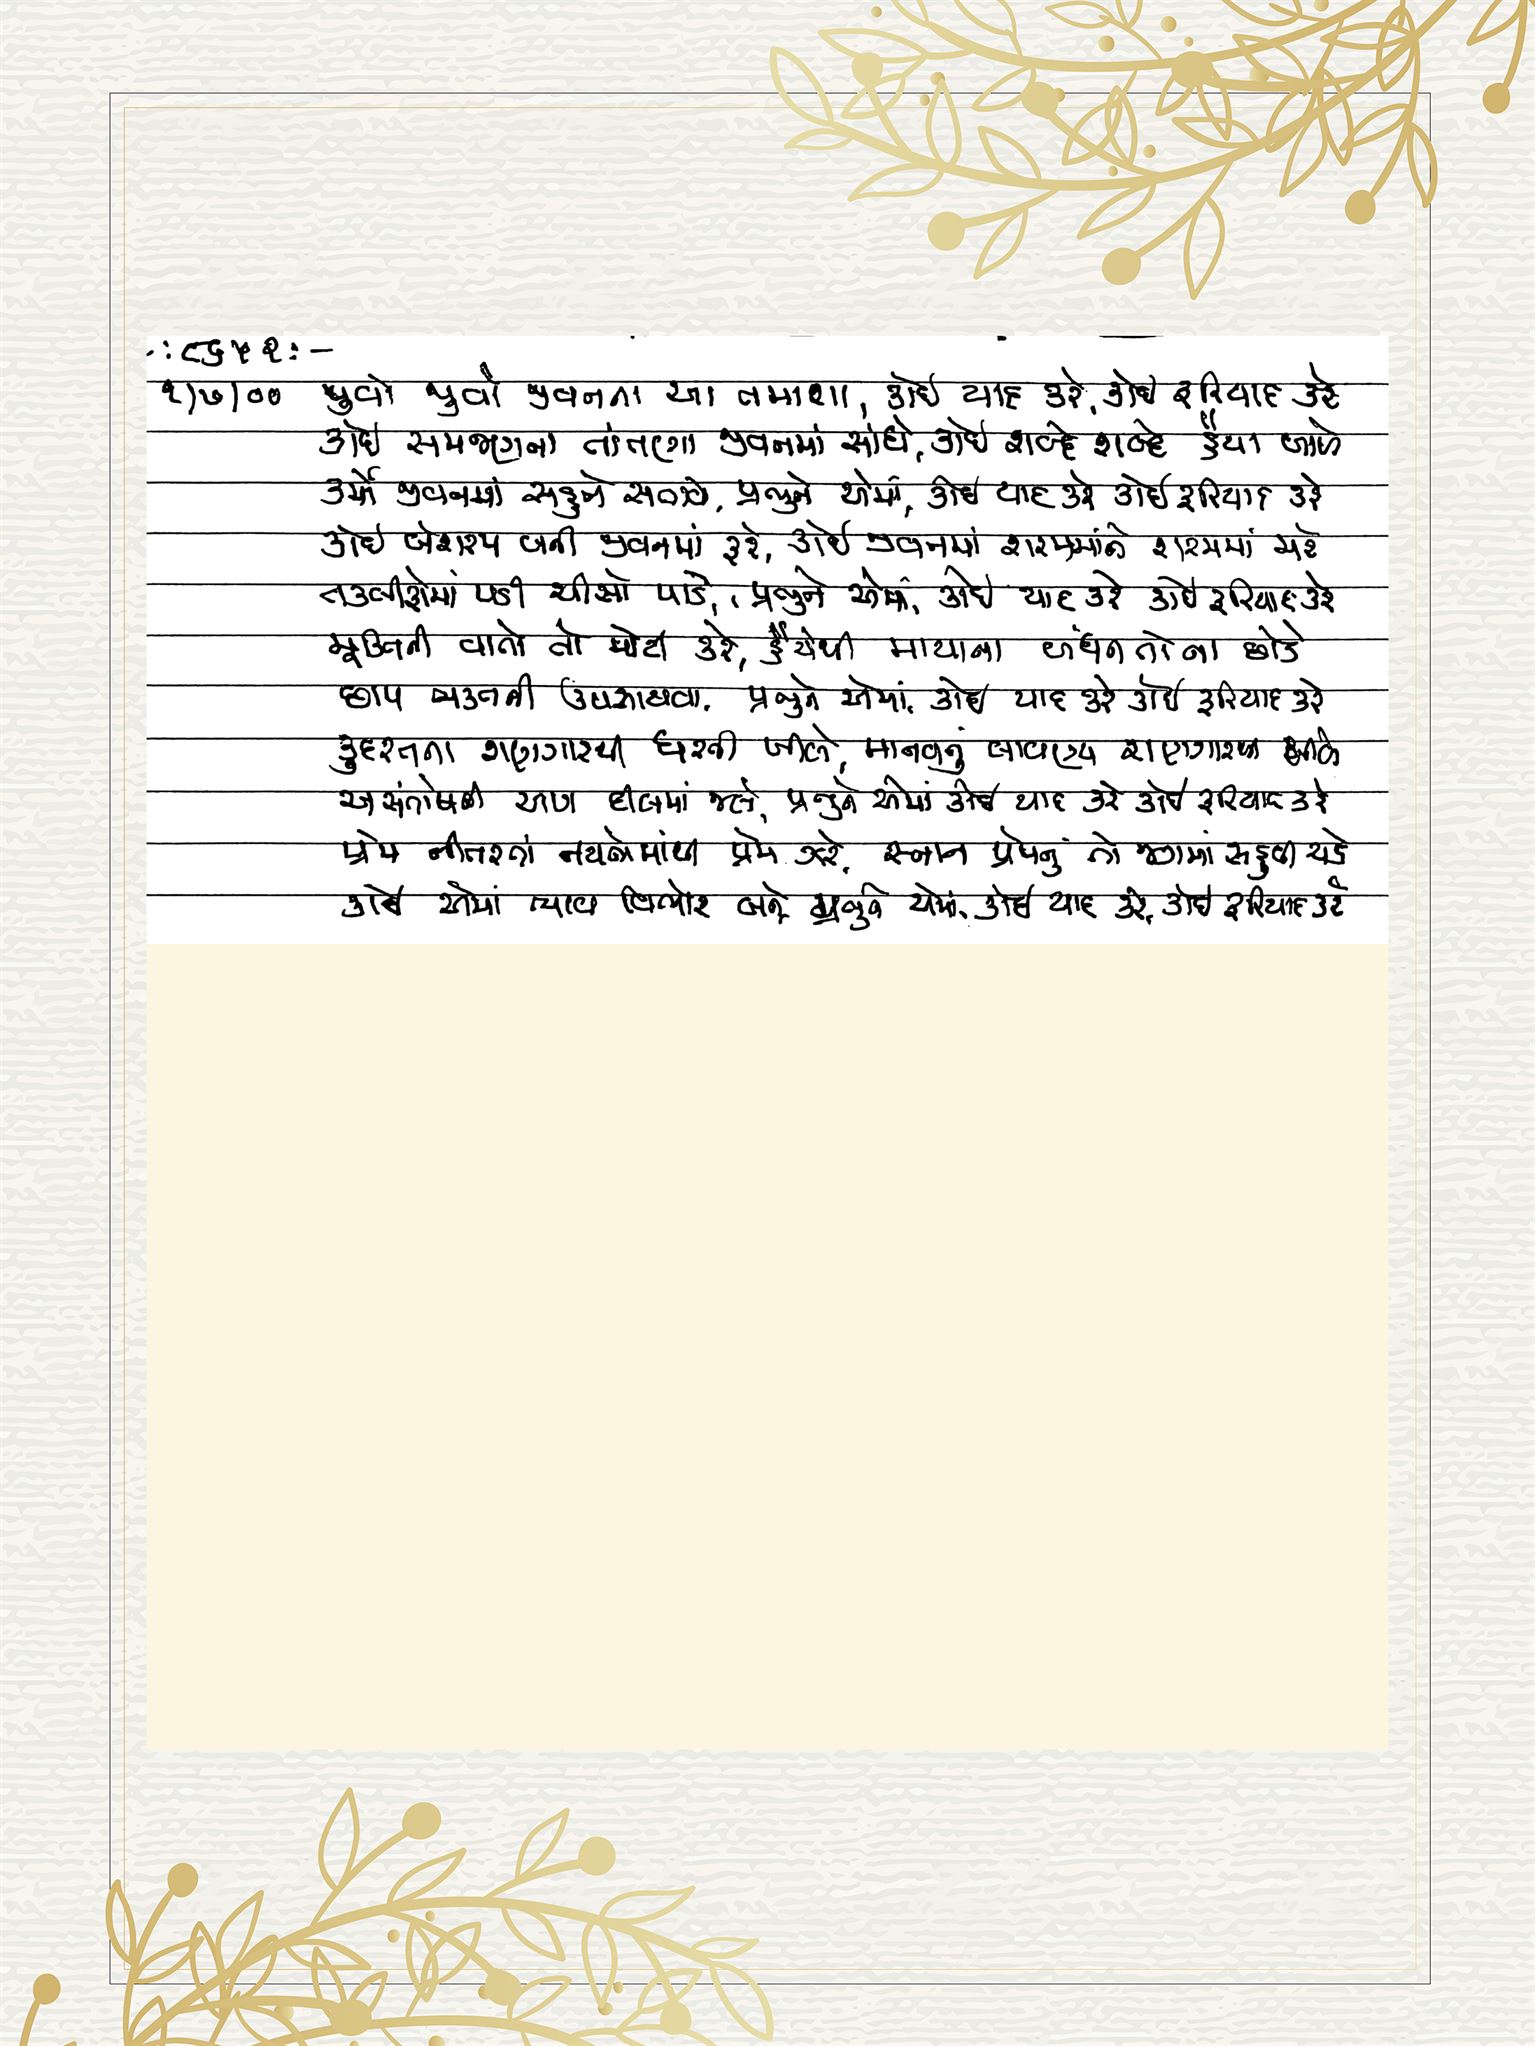 -: ૮૬૫૨ :-
૧/૭/૦૦ જુવો જુવો જીવનના આ તમાશા, કોઈ યાદ કરે, કોઈ ફરિયાદ કરે
કોઈ સમજણના તાંતણા જીવનમાં સાંધે, કોઈ શબ્દે શબ્દે હૈયા બાળે
કર્મો જીવનમાં સહુને સતાવે, પ્રભુને એમાં, કોઈ યાદ કરે કોઈ ફરિયાદ કરે
કોઈ બેશરમ બની જીવનમાં ફરે, કોઈ જીવનમાં શરમમાંને શરમમાં મરે
તકલીફોમાં પડી ચીસો પાડે, પ્રભુને એમાં, કોઈ યાદ કરે કોઈ ફરિયાદ કરે
મુક્તિની વાતો તો મોટી કરે, હૈયેથી માયાના બંધન તો ના છોડે
છાપ ભક્તની ઉપસાવવા, પ્રભુને એમાં, કોઈ યાદ કરે કોઈ ફરિયાદ કરે
કુદરતના શણગારથી ધરતી ખીલે, માનવનું લાવણ્ય શણગારથી ખીલે
અસંતોષની આગ દીલમાં જલે, પ્રભુને એમાં કોઈ યાદ કરે કોઈ ફરિયાદ કરે
પ્રેમ નીતરતાં નયનોમાંથી પ્રેમ ઝરે, સ્નાન પ્રેમનું તો જગમાં સહુને ગમે
કોઈ એમાં ભાવ વિભોર બને, પ્રભુને એમાં, કોઈ યાદ કરે, કોઈ ફરિયાદ કરે